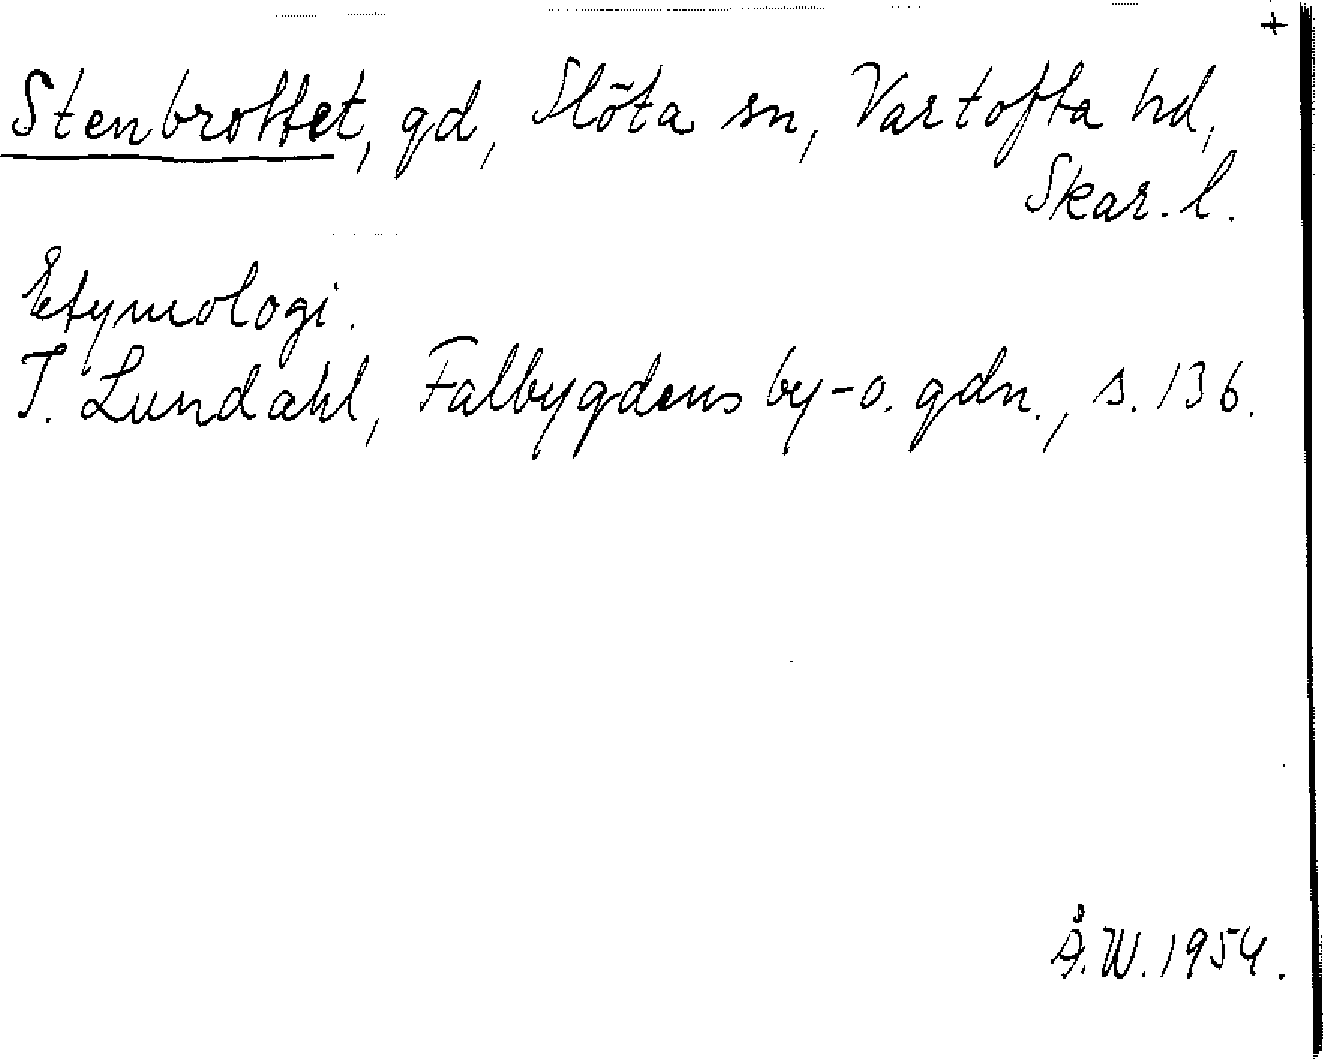 +
Stenbrottet, gd, Slöta sn, Vartofta hd,
Skar. l.
Etymologi.
I. Lundahl, Falbygdens by- o. gdn., s. 136.
Å.W. 1954.